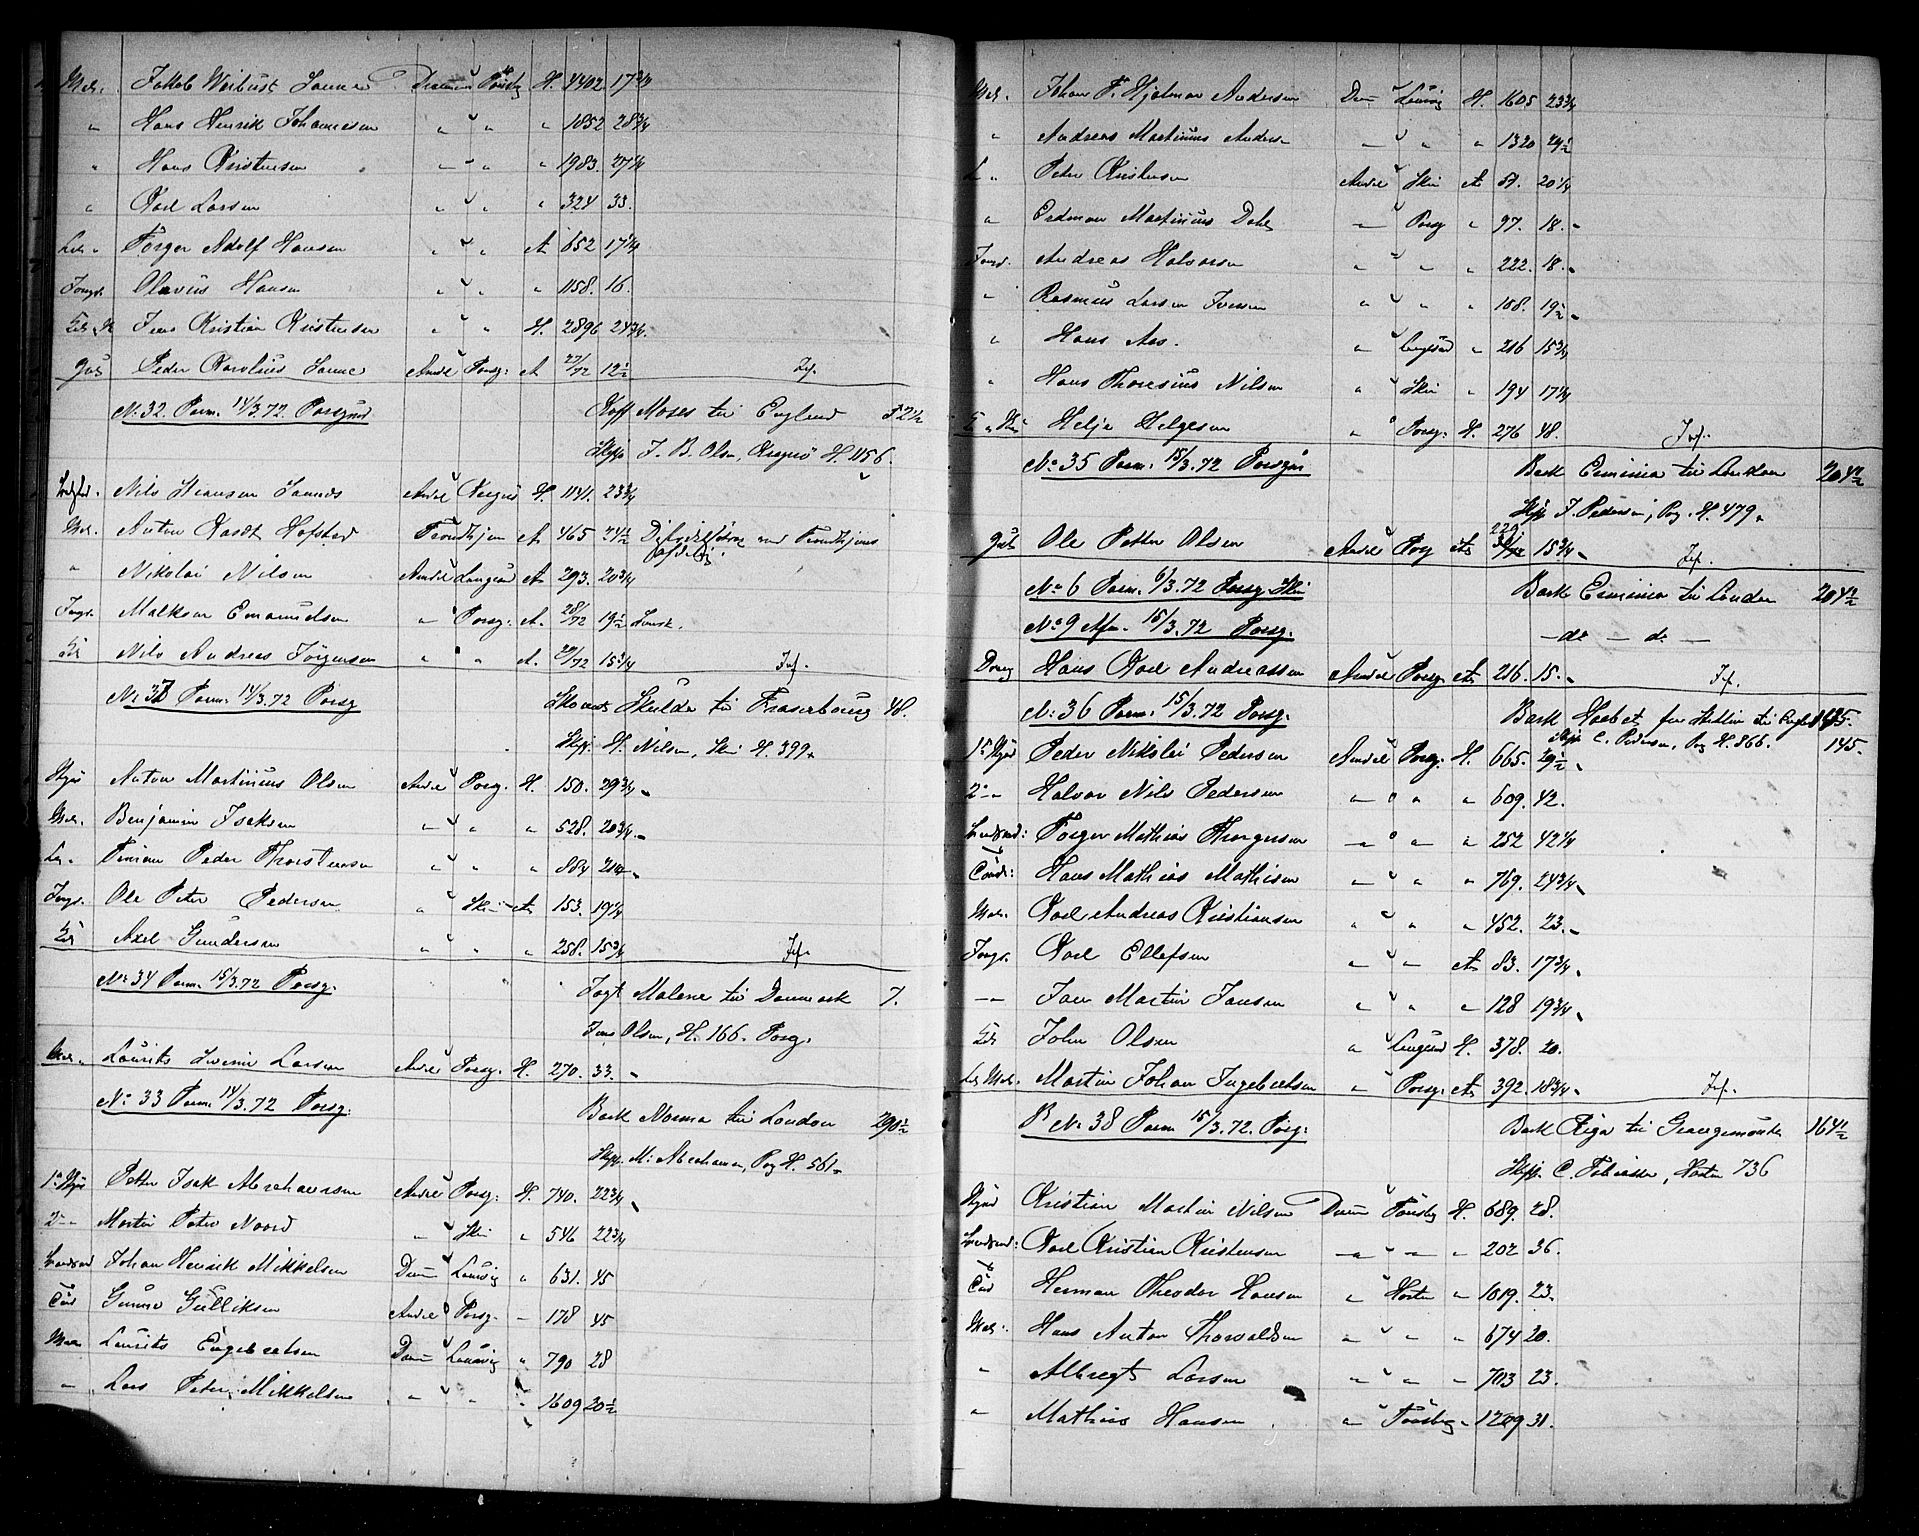 Mat. Jakob Weibust Sanne Dram Tönsbg H. 4402 17 3/4
" Hans Henrik Johannesen " " " 1852 28 3/4
" Hans Kristensen " " " 1983. 27 1/4
" Karl Larsen " " " 324 33.
Let. " Torger Adolf Hansen " " A 652 17 1/4
Jungs. Olavus Hansen " " " 1158. 16.
Jens Kristian Kristensen " " H. 2896 24 3/4
Gut Peder Karolius Sanne Arndl Porsg: A 27/72 12 1/2
No 32. Porm. 14/3.72. Porsgrund Koff Moses til England 52 1/2
Skpp. J. B. Olsen, Kragerö H. 1156.
Nils Hansen Arndl Kragerö H. 1141. 23 3/4
Mat. Anton Hofstad Trondhjem A 465 24 1/2
" Nikolai Nilsen Arndl Langesd A 293. 20 3/4
Jungs. Malksen Emanuelsen " Porsg: A. 28/72 19 1/2
Nils Andreas Jörgensen " " A. 27/72 15 3/4
No 37 Porm. 14/3.72 Porsg Skonnert Hulda til Fraserbourg 48.
Skpp. H. Nilsen, Skien H. 399
Styr Anton Martinius Olsen Arndl Porsg. H. 150. 29 3/4
Mat. Benjamin Isaksen " " " 528. 20 3/4
Peder Thorstensen " " " 884
Jungs. Ole Peter Pedersen " Skien A 153. 19 1/4
Axel Gundersen " " " 258. 15 3/4
No 34 Porm. 15/3.72 Porsg. Jagt Malene til Danmark 7.
Jens Olsen, H. 166. Porsg.
Lourits Severin Larsen Arndl Porsg. H. 270. 33.
No 33 Porm. 14/3.72 Porsg. Bark Norma til London 290 1/2
Skpp. M. Abrahamsen, Porsg H. 561
1e Styr Petter Isak Abrahamsen Arndl Porsg: H. 740. 22 3/4
2 " Martin Peter Noord " Skien " 546 22 3/4
Johan Henrik Mikkelsen Dram Laurvig " 631. 45
Gunno Gulliksen Arndl Porsg. " 178 45
Mat. Lourits Engebretsen Dram Laurvig " 790 28
" Lars Peter Mikkelsen " " " 1609 20 1/2
Mat. Johan F. Hjalmar Andersen Dram Laurvig H. 1605 23 3/4
" Andreas Martinius Anders. " " " 1320 24 1/2
L. " Peter Kristensen Arndl Skien A 57. 20 1/4
" Martinius Dahl " Porsg " 97. 18.
Jungs. Andreas Halvorsen " " " 222. 18.
" Rasmus Larsen " " " 108. 19 1/2
" Hans Aas. " Langesd " 216 15 3/4
" Hans Thoresius Nilsen " Skien " 194 17 1/4
Helje Helgesen " Porsg. H. 276 48.
No 35 Porm. 15/3.72 Porsgr Bark Erminia til London 204 1/2
Skpp J. Pedersen, Porsg. H. 479
Gut Ole Petter Olsen Arndl Porsg A 15 3/4
No 6 Porm. 6/3.72 Porsg Skien Bark Erminia til London 204 1/2
No 9 Afm. 15/3.72 Porsg. — do — do —
Dreng Hans Karl Andreassen Arndl Porsg A 216. 15.
No 36 Porm. 15/3.72 Porsg. Bark Haabet fra til England 145.
Skpp C. Pedersen, Porsg H. 866. 145.
1e Styrd Peder Nikolai Pedersen Arndl Porsg. H. 665. 29 1/2
2 " Halvor Nils Pedersen " " " 609. 42.
Torger Mathias Thorgersen " " " 252 42 1/4
Hans Mathias Mathisen " " " 769. 24 3/4
Mat. Karl Andreas Kristiansen " " " 452. 23.
Jungs. Karl Ellefsen " " A 83. 17 3/4
" Jan Martin Jansen " " " 128 19 3/4
John Olsen " Langesd H. 378. 20.
Let Mat. Martin Johan Ingebretsen " Porsg. A 392. 18 3/4
No 38 Porm 15/3.72. Porsg: Bark Riga til Grangemouth 164 1/2
Skpp. C. Tobiassen, Horten 736
Styrd Kristian Martin Nilsen Dram Tönsbg H. 689. 28.
Karl Kristian Kristensen " " " 202 36.
Herman Theodor Hansen " Horten " 1019. 23.
Mat. Hans Anton Thorvaldsen " " " 674 20.
" Albregt Larsen " " " 703 23.
" Mathias Hansen " Tönsbg " 1209 31.